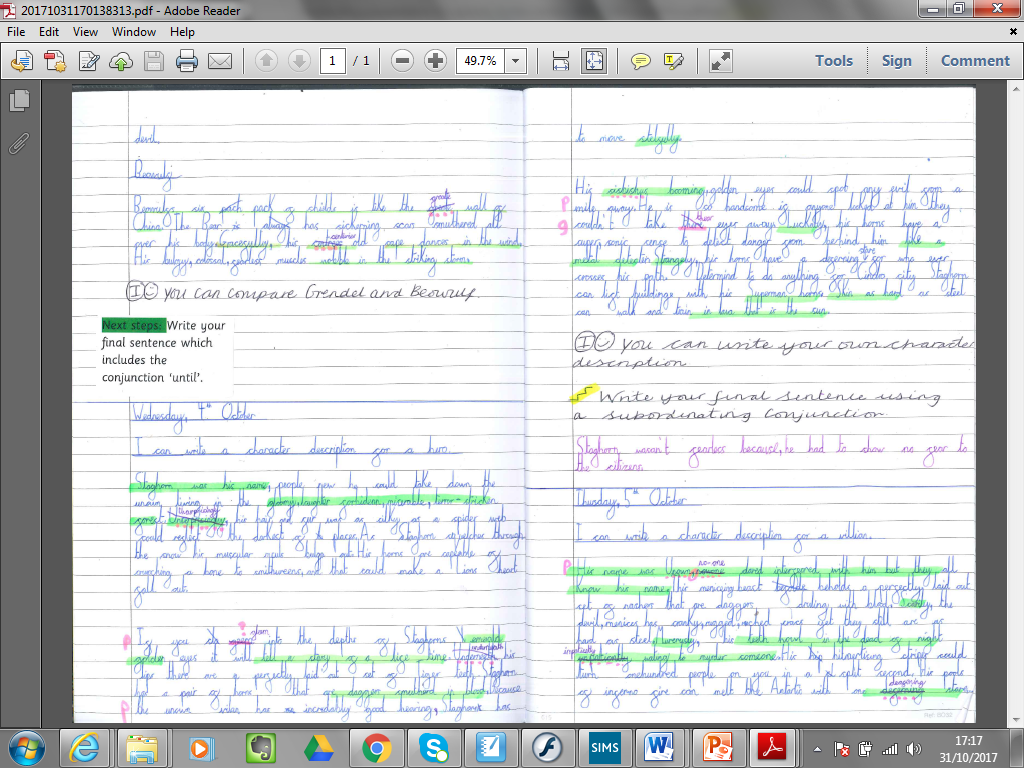 20171031170138313.pdf - Adobe Reader
File Edit View Window Help
1 / 1 49.7% Tools Sign Comment
devil.
Beowulf
Beowulfs six pack pack of childs is like the great wall of
China. The Bear is always has sickening scars smuthered all
over his body gracesfully, his old cape dances in the wind.
His bulgy, colosal, fearless muscles notible in the striking storm.
I can compare Grendel and Beowulf.
Next steps: Write your
final sentence which
includes the
conjunction 'until'.
Wednesday, 4th October
I can write a character description for a hero.
Staghorn was his name, people few he could take down the
unown living in the gloomy, laughter forbidden, miserable, terror-striken
forest. his half red fur was as silky as a spider web
could reflect the darkest of places. As Staghorn through
the snow his muscular muscle bulge out. His horns are capable of
a bone to smithureens, and that could make a lions heart
fall out.
If you into the depths of Staghorns
golden eyes it will tell a story of a life time. Underneath his
lips there are a perfectly laid out set of tiger teeth. Staghorn
has a pair of horns that are daggers smutherd in blood. Because
the unown vilan has incredably good hearing, Staghorn has
to move
His booming, golden eyes could spot any evil from a
mile away. He is so handsome if anyone looked at him they
couldn't take their eyes away. Luckily, his horns have a
super sonic sense to detect danger from behind him like a
metal detector. Strangely, his horns have a stare for who ever
crosses his path. Determind to do anything for city Staghorn
can lift buildings with his Superman horns. Skin as hard as steel
can walk and train in lava that is the sun.
I you can write your own character
description
Write your final sentence using
a subordinating conjunction
Staghorn wasn't fearless because, he had to show no fear to
the citizens.
Thursday, 5th October
I can write a character description for a villian.
His name was Unown no-one dared interfered with him but they all
know his name. This menicing beast beholds a perfectly laid out
set of nashers that are daggers with blood. the
devil, menices has cranky, rugged, fangs yet they still are as
hard as steel. his teeth howl in the dead of night
waiting to murder someone. His big could
turn onehundred people on you in a split second. His pools
of inferno fire can melt the Antartic with one stare.
SIMS
17:17
31/10/2017